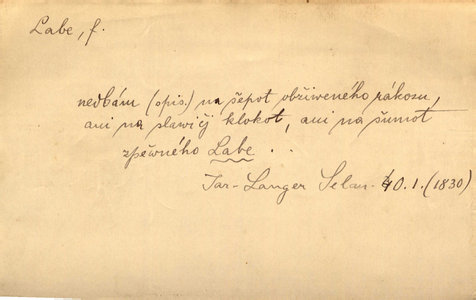 Labe, f.
nedbám (opis.) na šepot obživeného rákosu,
ani na slawičj klokot, ani na šumot
zpěwného Labe . .
Jar-Langer Selan. 40.1.(1830)